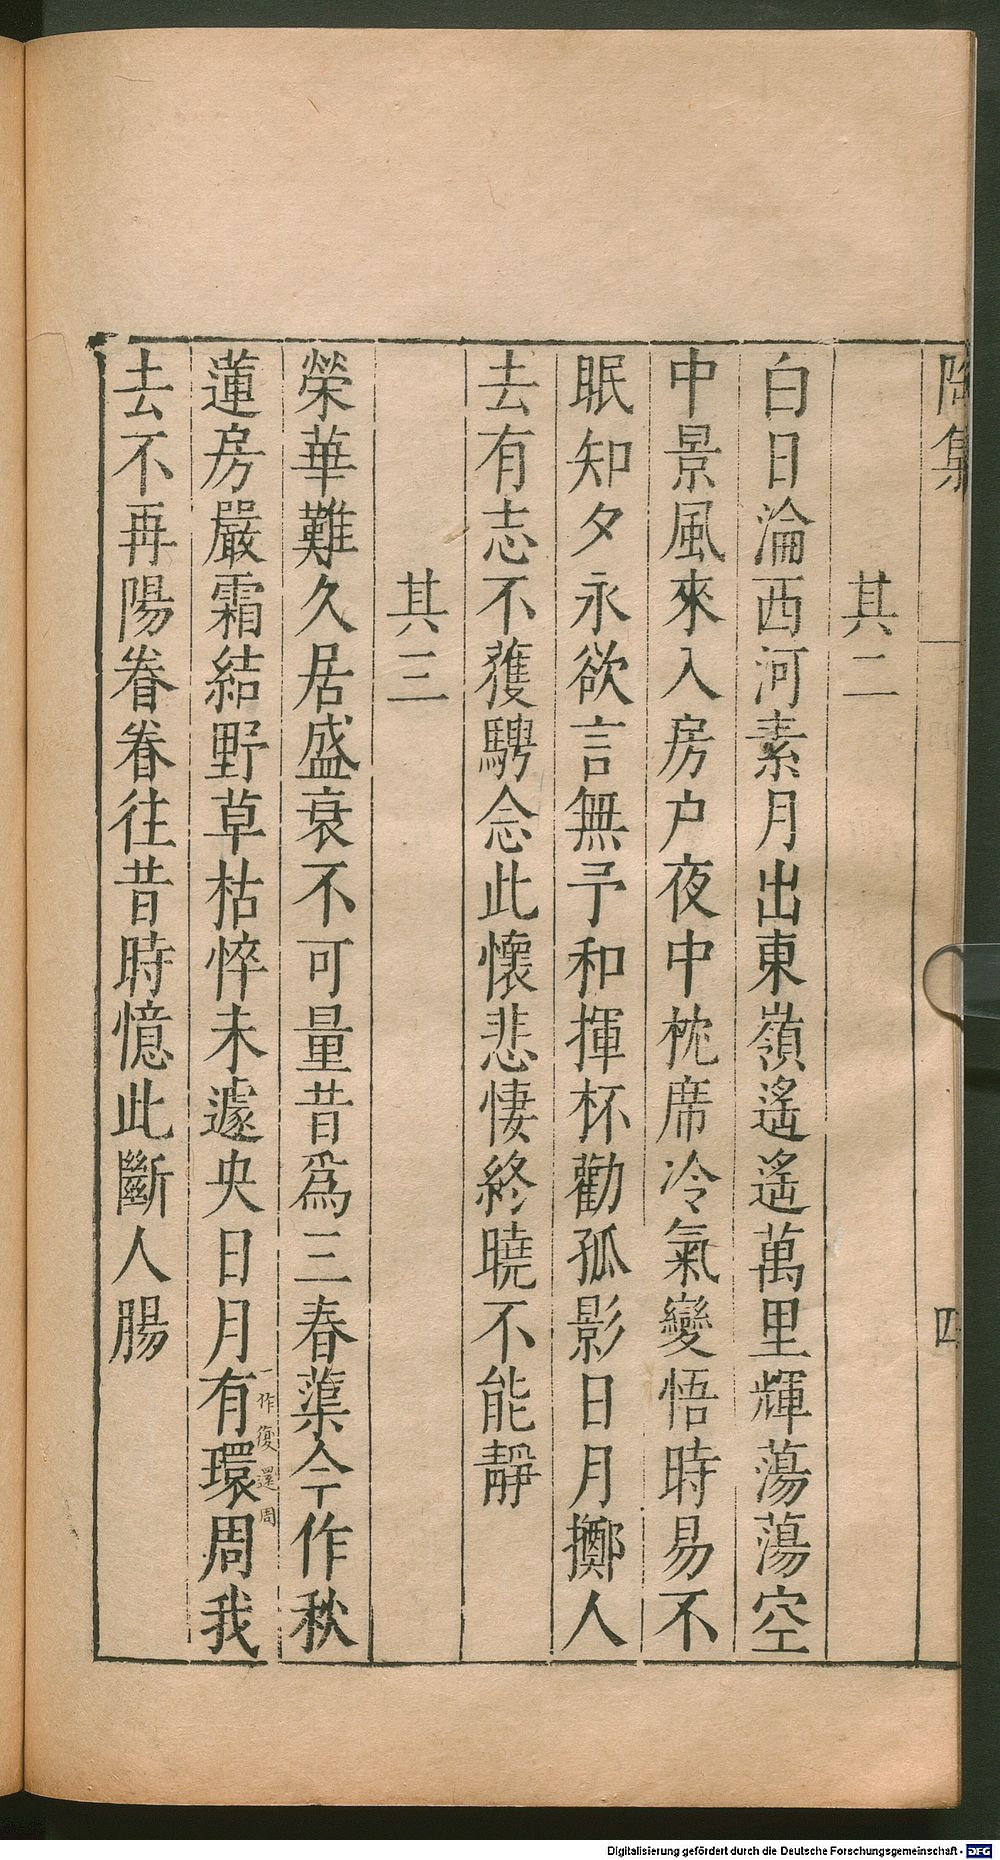 陶集
四
其二
白日淪西河素月出東嶺遙遙萬里輝蕩蕩空
中景風來入房户夜中枕席冷氣變悟時易不
眠知夕永欲言無予和揮杯勸孤影日月擲人
去有志不獲騁念此懷悲悽終曉不能靜
其三
榮華難久居盛衰不可量昔爲三春蕖今作秋
蓮房嚴霜結野草枯悴未遽央日月有環周我
一作復還周
去不再陽眷眷往昔時憶此斷人腸
Digitalisierung gefördert durch die Deutsche Forschungsgemeinschaft - DFG